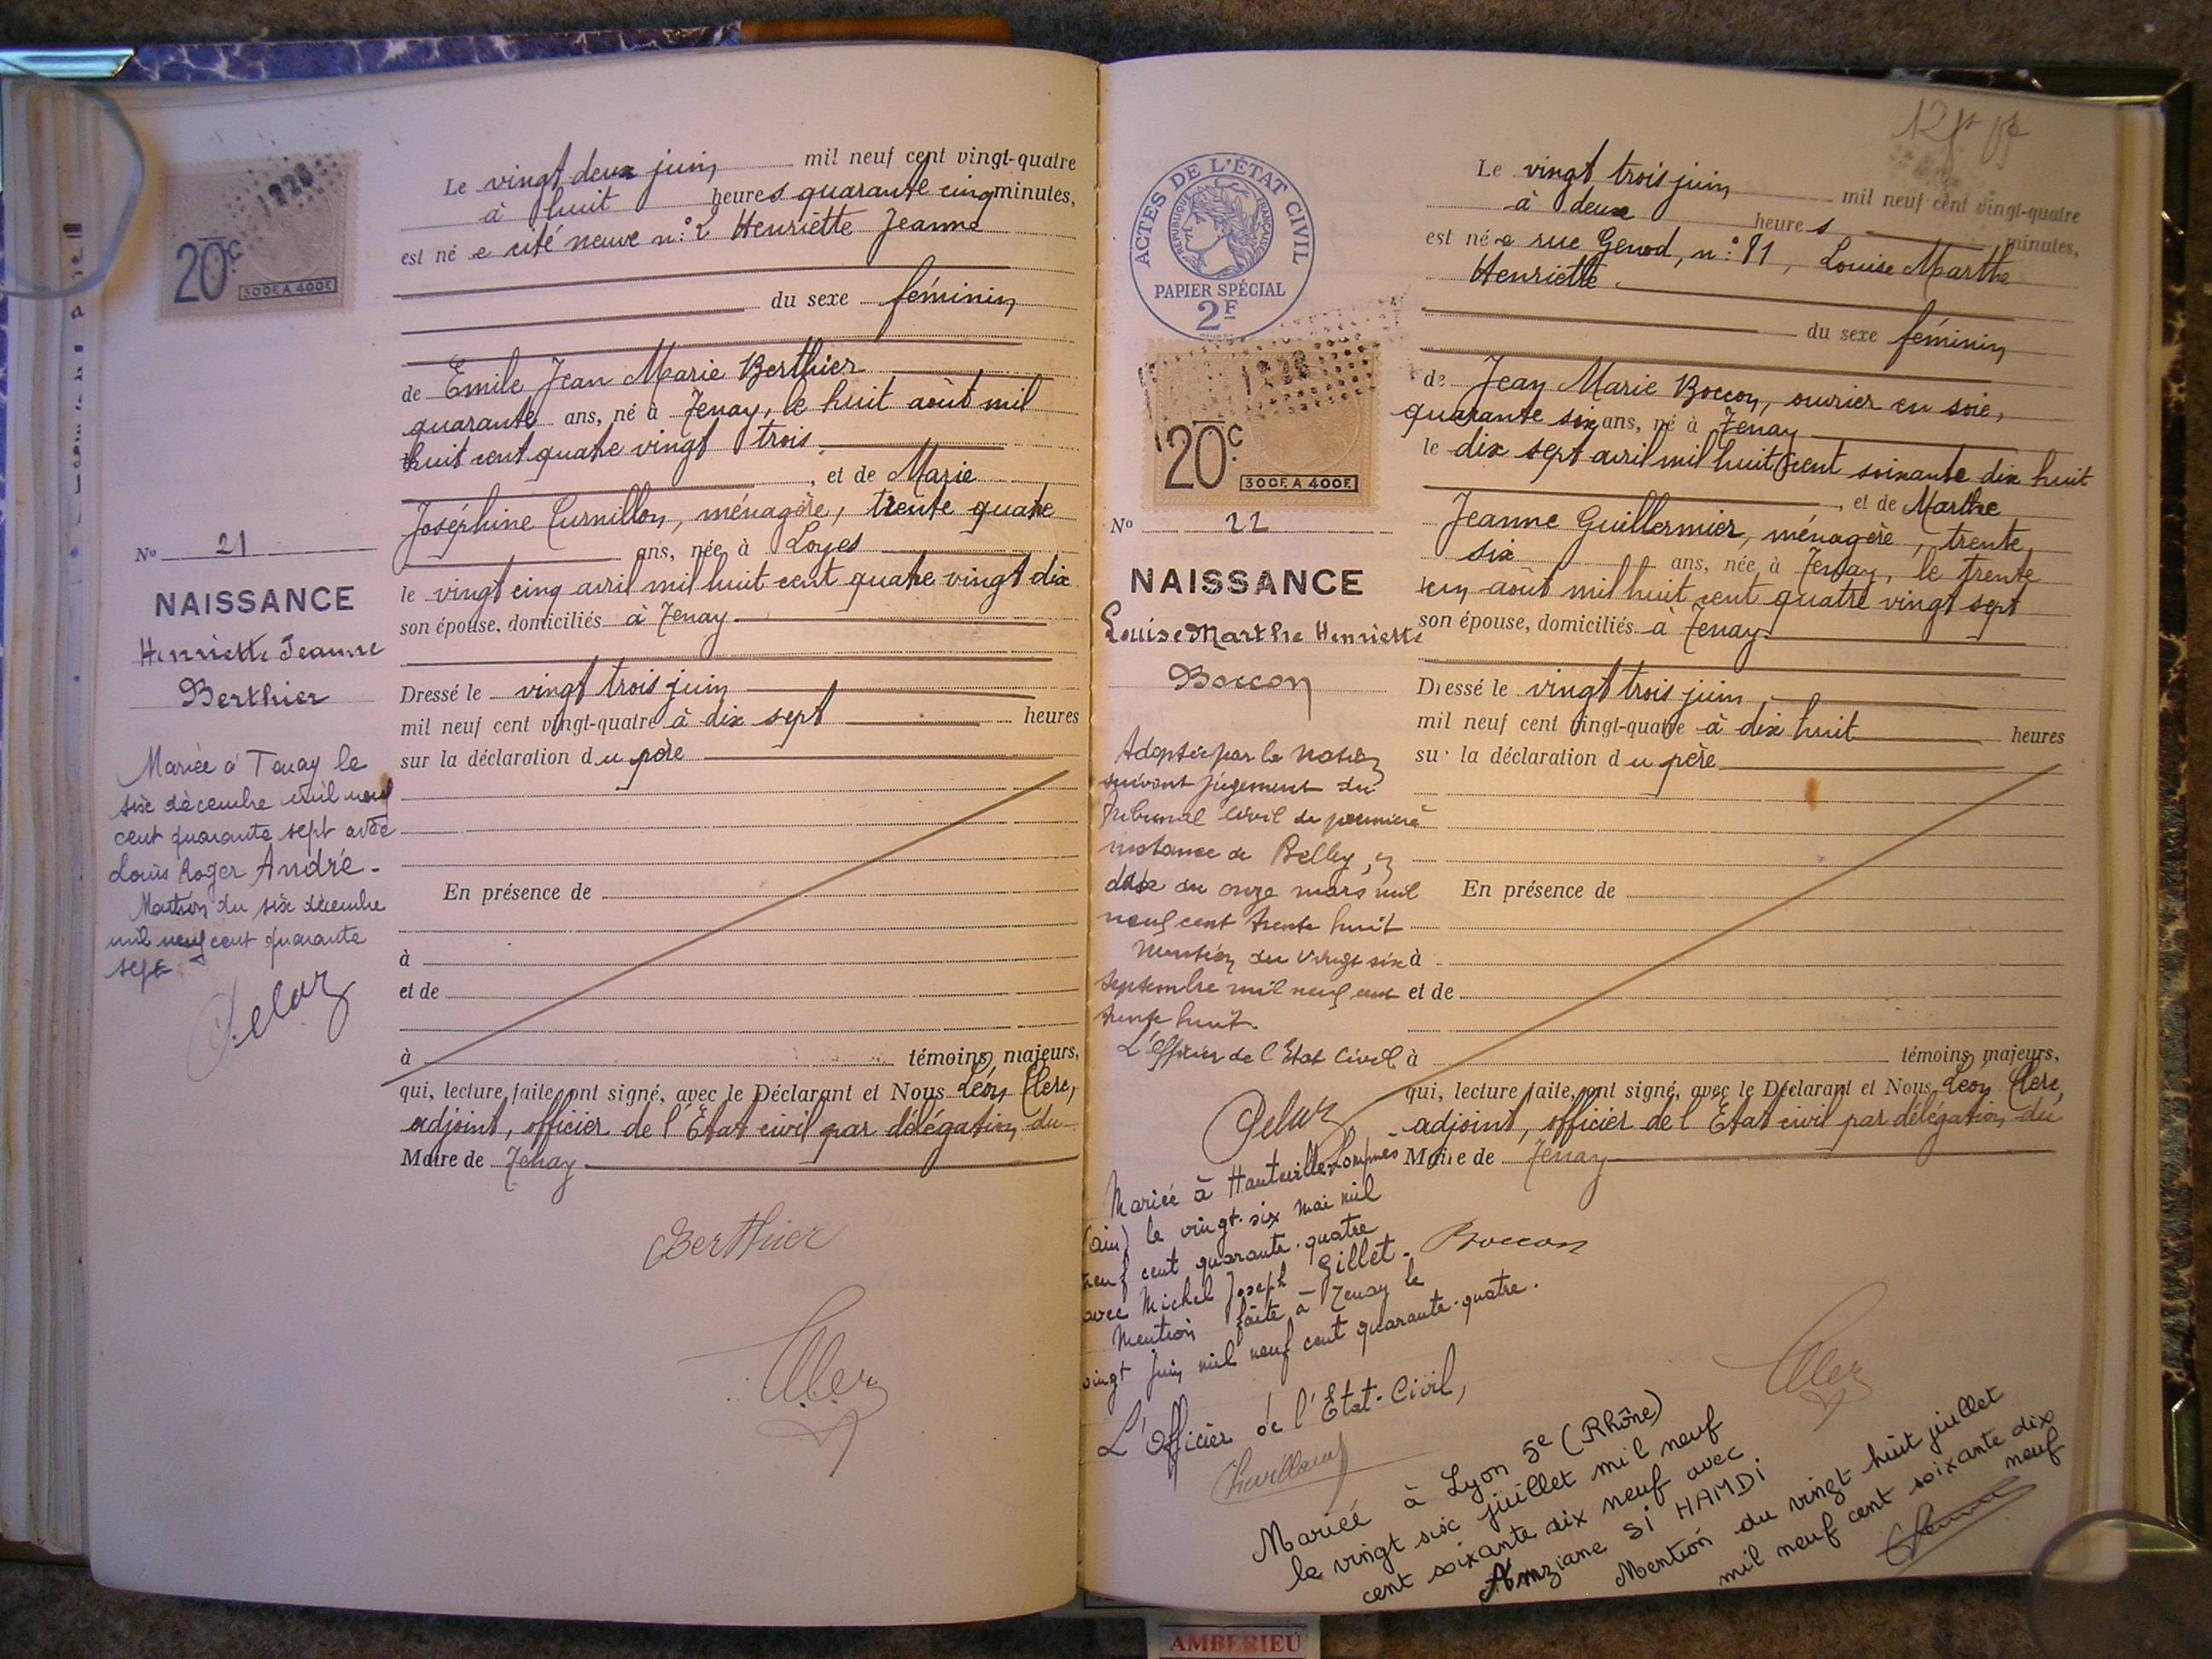 1226
20c
300F. A 400F.
No 21
NAISSANCE
Henriette Jeanne
Berthier
Mariée à Tenay le
six décembre mil neuf
cent quarante sept avec
Louis Roger André.
Mention du six décembre
mil neuf cent quarante
sept
Le vingt deux juin mil neuf cent vingt-quatre
à huit heures quarante cinq minutes,
est née cité neuve n:° 2 Henriette Jeanne
du sexe féminin
de Emile Jean Marie Berthier
quarante ans, né à Tenay, le huit août mil
huit cent quatre vingt trois
, et de Marie
Joséphine Curnillon, ménagère, trente quatre
ans, née à Loyes
le vingt cinq avril mil huit cent quatre vingt dix
son épouse, domiciliés à Tenay
Dressé le vingt trois juin
mil neuf cent vingt-quatre à dix sept heures
sur la déclaration du père
En présence de
à
et de
à témoins majeurs,
qui, lecture faite, ont signé, avec le Déclarant et Nous Léon Clerc,
adjoint, officier de l'État civil par délégation du
Maire de Tenay
Berthier
ACTES DE L'ÉTAT CIVIL
RÉPUBLIQUE FRANÇAISE
PAPIER SPÉCIAL
2F
1226
20c
300F. A 400F.
No 22
NAISSANCE
Louise Marthe Henriette
Boccon
Adoptée par la Nation
suivant jugement du
Tribunal Civil de première
instance de Belley, en
date du onze mars mil
neuf cent trente huit
Mention du vingt six
septembre mil neuf cent
trente huit.
L'Officier de l'Etat Civil
Mariée à Hauteville-Lompnes
(Ain) le vingt-six mai mil
neuf cent quarante-quatre
avec Michel Joseph Gillet.
Mention faite à Tenay le
vingt juin mil neuf cent quarante-quatre.
L'Officier de l'État-Civil,
Le vingt trois juin mil neuf cent vingt-quatre
à deux heures minutes,
est née rue Genod, n:° 81, Louise Marthe
Henriette
du sexe féminin
de Jean Marie Boccon, ouvrier en soie,
quarante six ans, né à Tenay
le dix sept avril mil huit cent soixante dix huit
, et de Marthe
Jeanne Guillermier, ménagère, trente
six ans, née à Tenay, le trente
un août mil huit cent quatre vingt sept
son épouse, domiciliés à Tenay
Dressé le vingt trois juin
mil neuf cent vingt-quatre à dix huit heures
sur la déclaration du père
En présence de
à
et de
à témoins majeurs,
qui, lecture faite, ont signé, avec le Déclarant et Nous Léon Clerc,
adjoint, officier de l'État civil par délégation du
Maire de Tenay
Boccon
Mariée à Lyon 5e (Rhône)
le vingt six juillet mil neuf
cent soixante dix neuf avec
Amziane SI HAMDI
Mention du vingt huit juillet
mil neuf cent soixante dix
neuf
AMBERIEU